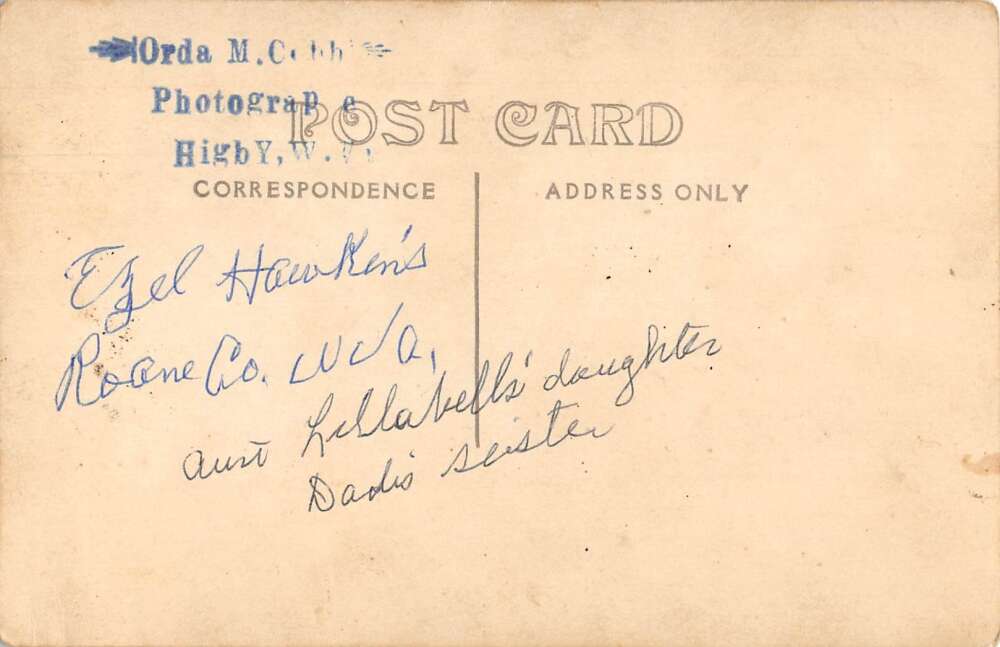 Orda M.
Photograp e
HigbY, W.
POST CARD
CORRESPONDENCE
ADDRESS ONLY
Ezel Hawken's
Roane Co. W Va,
aunt Lillabell's daughter
Dad's seister